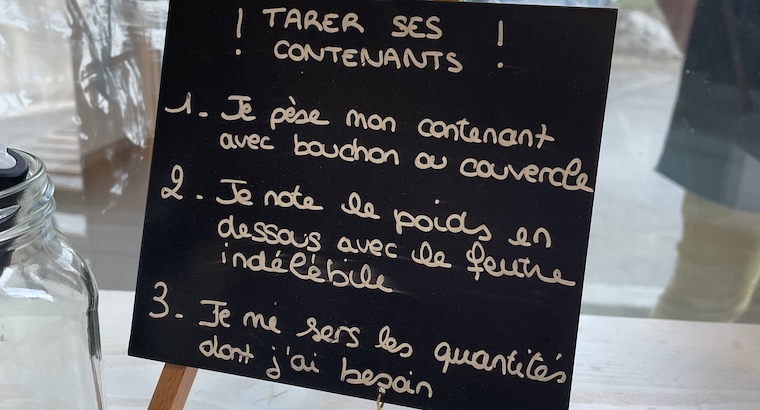 ! TARER SES !
CONTENANTS
1. Je pèse mon contenant
avec bouchon ou couvercle
2. Je note le poids en
dessous avec le feutre
indélébile
3. Je me sers les quantités
dont j'ai besoin